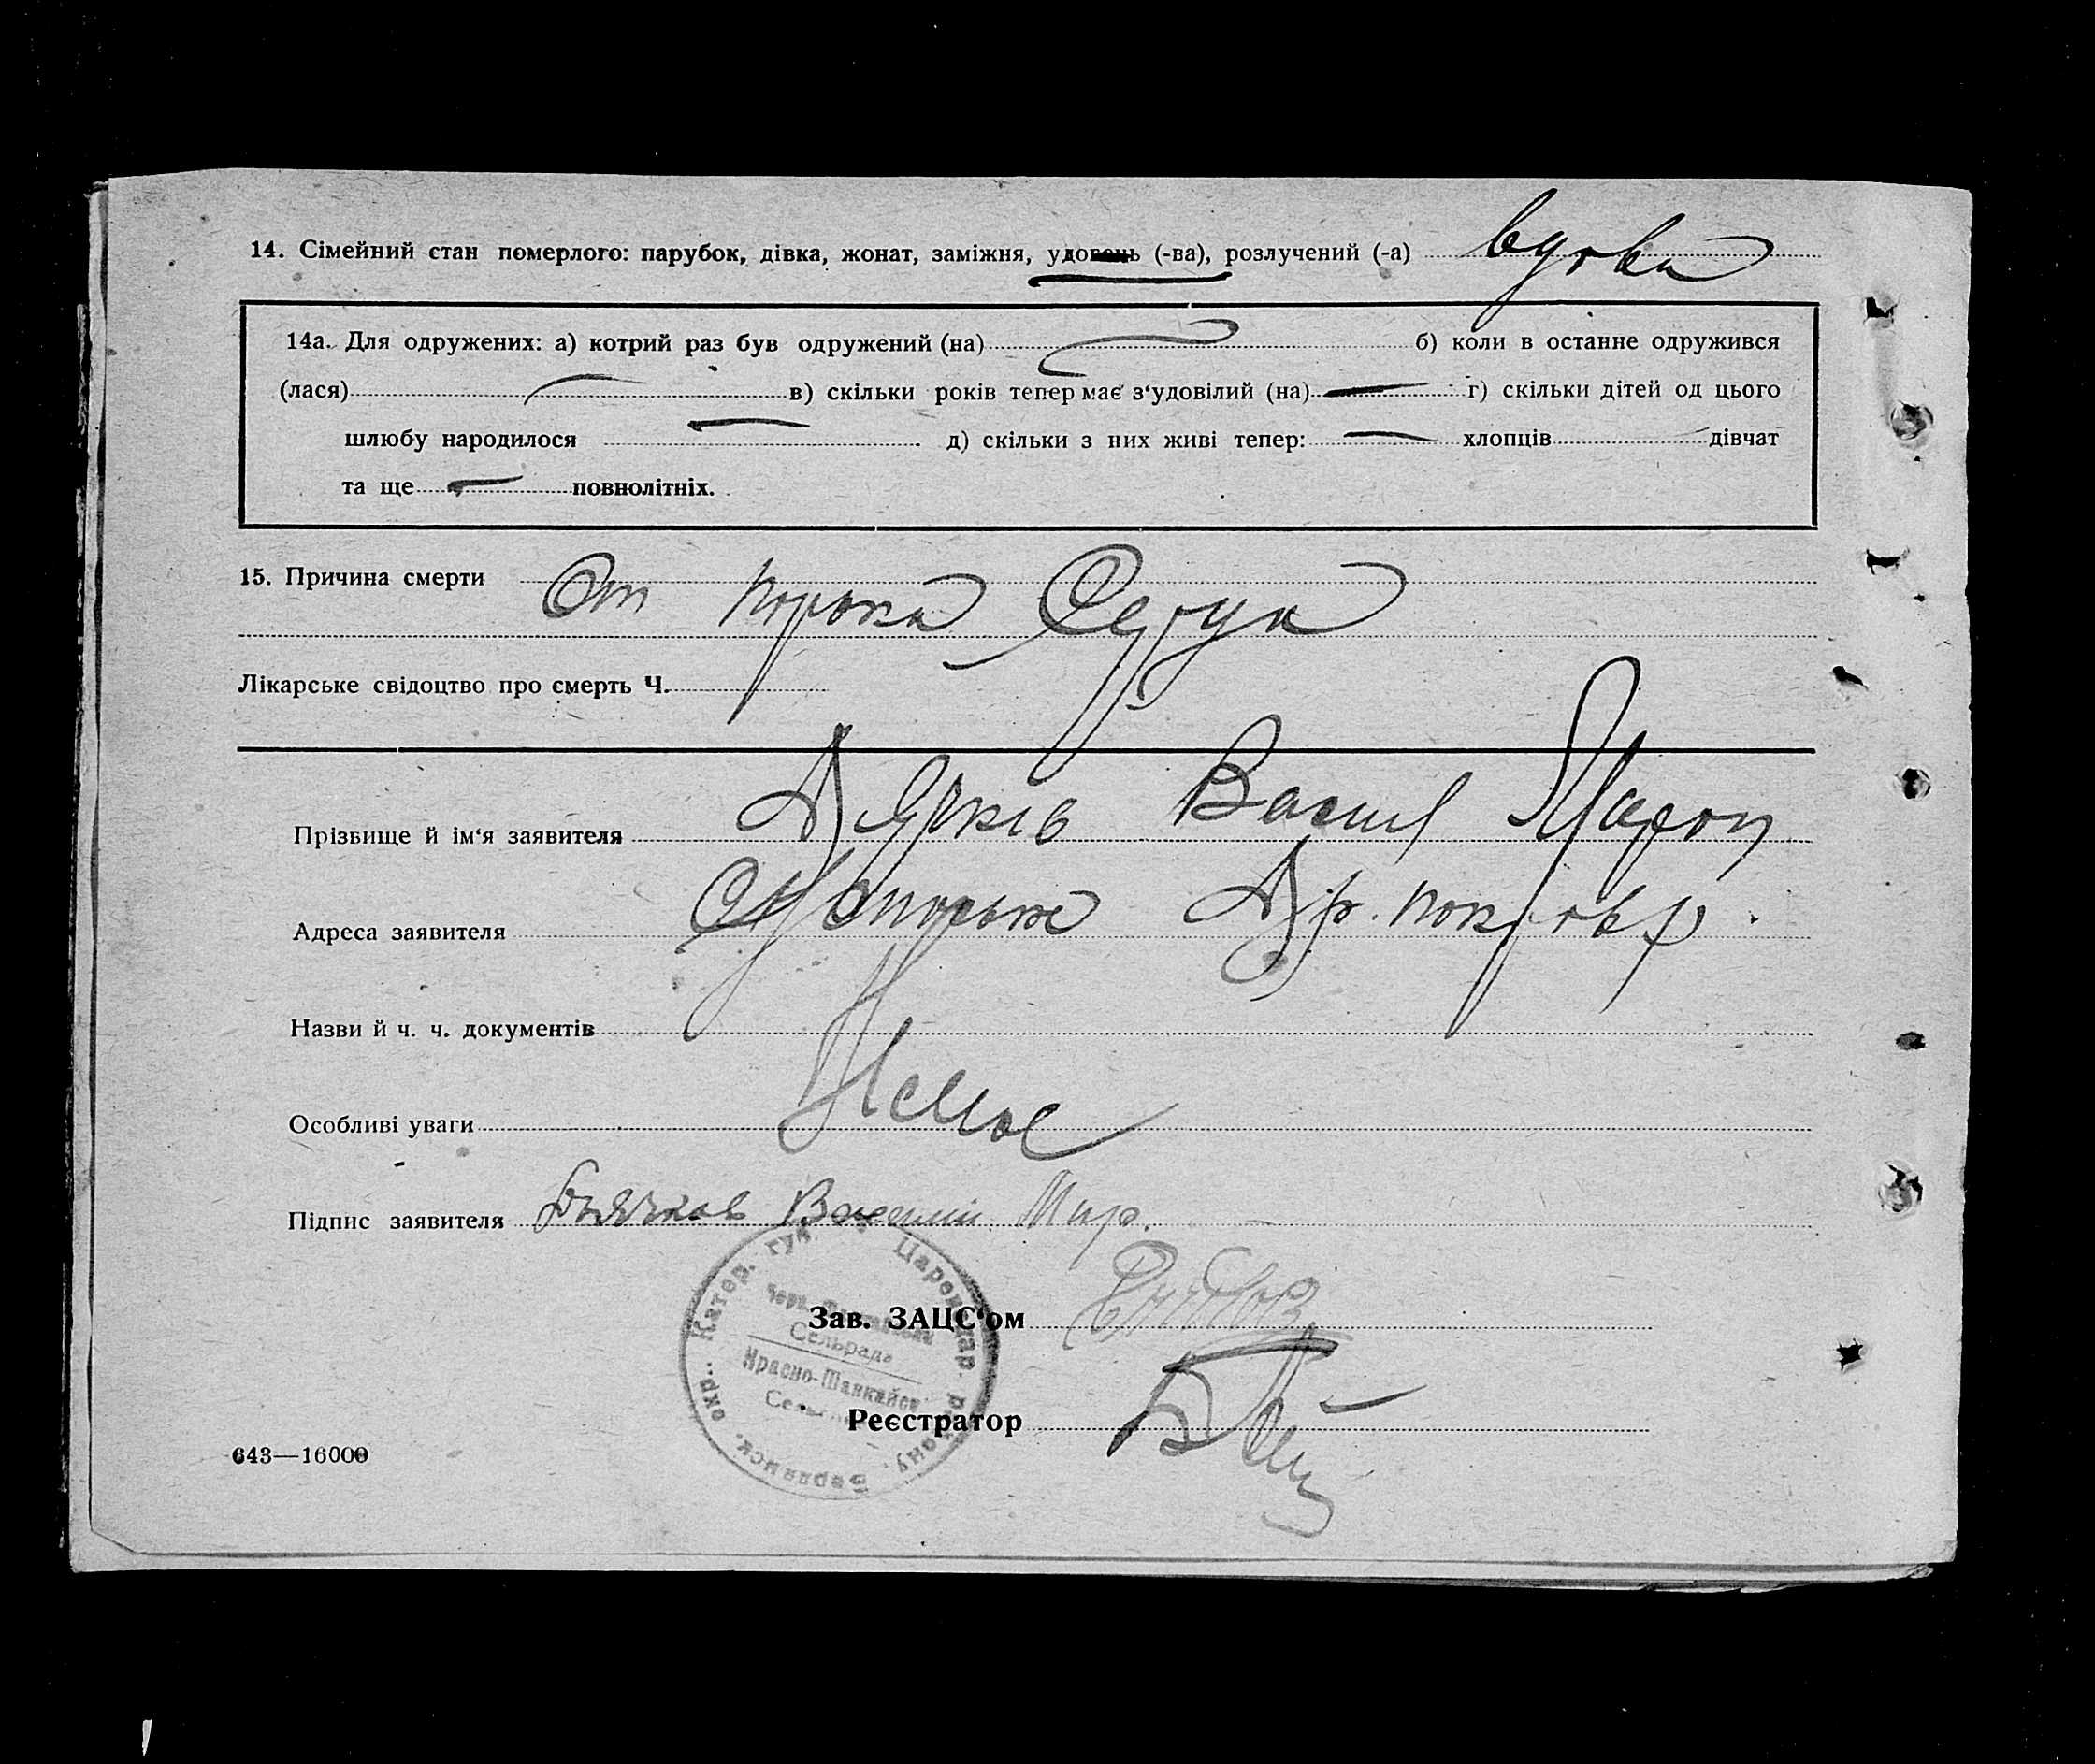 14. Сімейний стан померлого: парубок, дівка, жонат, заміжня, удовець (-ва), розлучений (-а) вдова
14а. Для одружених: а) котрий раз був одружений (на) б) коли в останне одружився
(лася) в) скільки років тепер має з'удовілий (на) — г) скільки дітей од цього
шлюбу народилося — д) скільки з них живі тепер: — хлопців дівчат
та ще — повнолітніх.
15. Причина смерти От порока Сердца
Лікарське свідоцтво про смерть Ч.
Прізвище й ім'я заявителя Василь
Адреса заявителя
Назви й ч. ч. документів
Особливі уваги Немае
Підпис заявителя Дьячков Василий Мир.
Катер. губ. Царекон дар. району, Бердянск. окр.
Сельрада
Красно-Шанкайск
Зав. ЗАЦС'ом
Реєстратор
643—16000